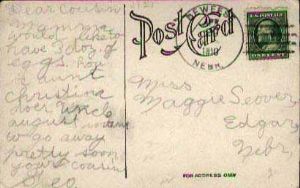 Dear Cousin
Mamma
would like to
have 3 doz. of
eggs. For
aunt
christina
over uncle
august
to go away
pretty soon
your cousin
Post Card
DEWEESE
1910
NEBR.
Miss
Maggie Seover,
Edgar,
Nebr.
FOR ADDRESS ONLY